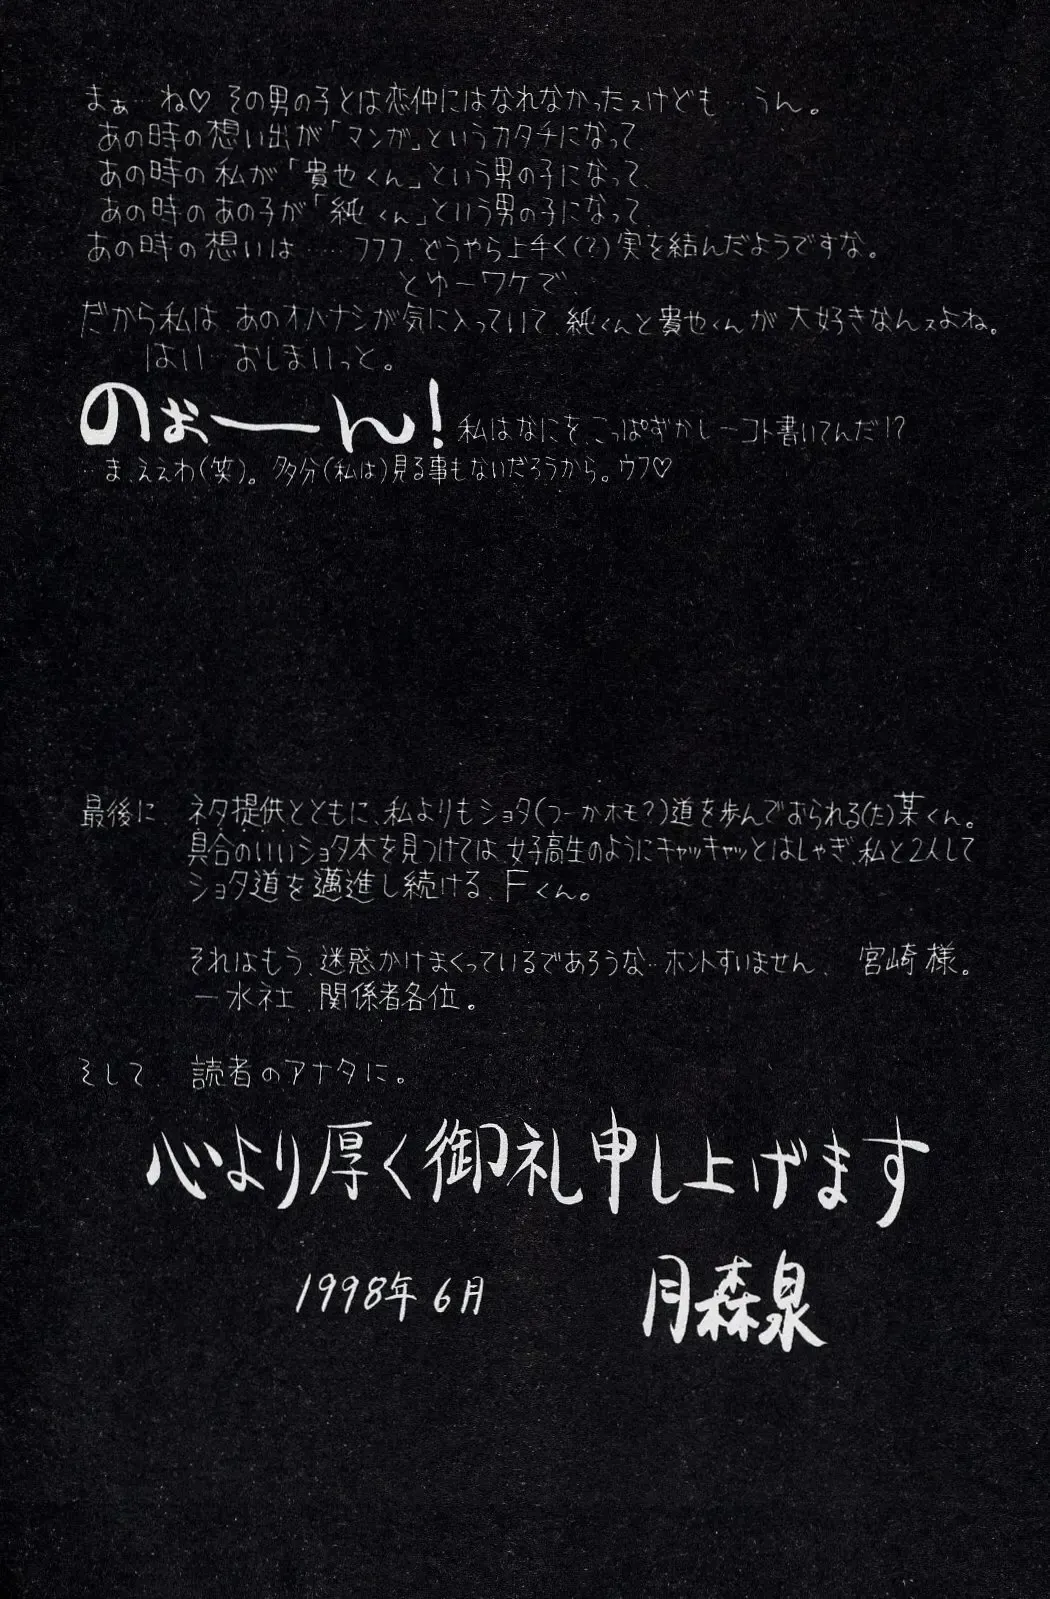 まぁ…ね♡ その男の子とは恋仲にはなれなかったㇲけども…うん。
あの時の想い出が「マンガ」というカタチになって、
あの時の私が「貴也くん」という男の子になって、
あの時のあの子が「純くん」という男の子になって、
あの時の想いは……フフフ どうやら上手く(?)実を結んだようですな。
とゆーワケで、
だから私は、あのオハナシが気に入っていて、純くんと貴也くんが 大好きなんㇲよね。
はい…おしまいっと。
のぉーーん! 私はなにを、こっぱずかしーコト書いてんだ!?
…ま、ええわ(笑)。多分(私は)見る事もないだろうから。ウフ♡
最後に、ネタ提供とともに、私よりもショタ(つーかホモ?)道を歩んでおられる(た)某くん。
具合のいいショタ本を見つけては、女子高生のようにキャッキャッとはしゃぎ、私と2人して
ショタ道を邁進し続ける、Fくん。
それはもう、迷惑かけまくっているであろうな…ホントすいません、宮崎様。
一水社、関係者各位。
そして、読者のアナタに。
心より厚く御礼申し上げます
1998年6月 月森泉